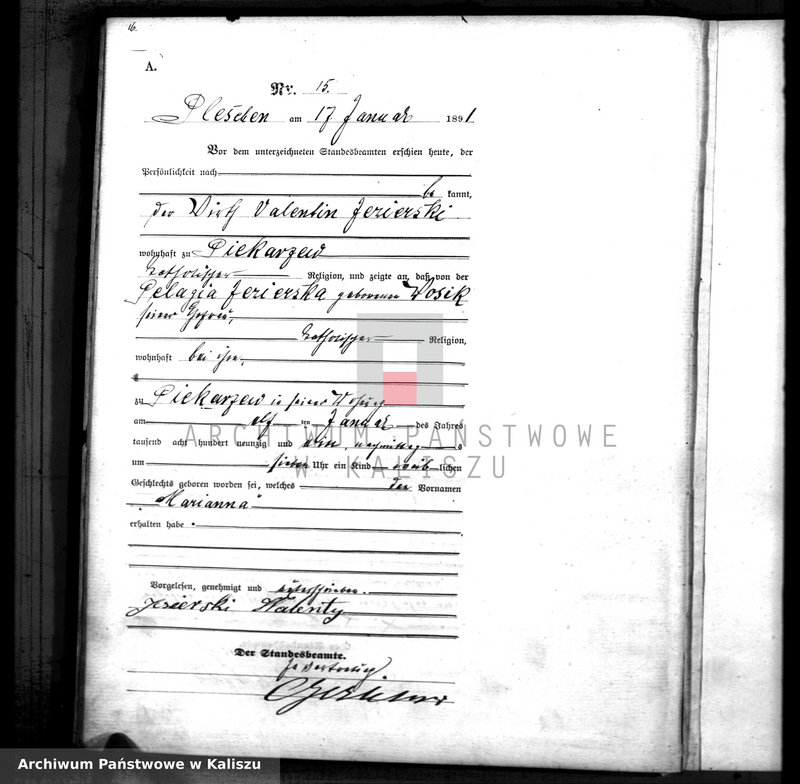 16.
A.
Nr. 15.
Pleschen am 17 Januar 1891.
Vor dem unterzeichneten Standesbeamten erschien heute, der
Persönlichkeit nach
be kannt,
der Wirth Valentin Jezierski
wohnhaft zu Piekarzew
katholischer Religion, und zeigte an, daß von der
Pelagia Jezierska geborenen Wosik
seiner Ehefrau,
katholischer Religion,
wohnhaft bei ihm,
zu Piekarzew in seiner Wohnung
am elf ten Januar des Jahres
tausend acht hundert neunzig und eins, nachmittags
um sieben Uhr ein Kind weib lichen
Geschlechts geboren worden sei, welches den Vornamen
"Marianna"
erhalten habe.
Vorgelesen, genehmigt und unterschrieben.
Jezierski Walenty
Der Standesbeamte.
In Vertretung
ARCHIWUM PAŃSTWOWE
W KALISZU
Archiwum Państwowe w Kaliszu